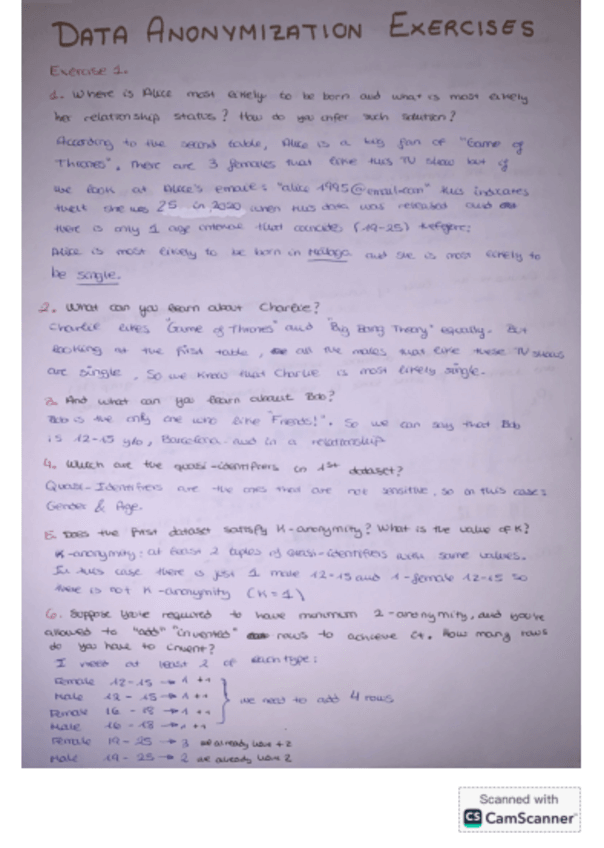 DATA ANONYMIZATION EXERCISES
Exercise 1.
1. Where is Alice most likely to be born and what is most likely
her relationship status? How do you infer such solution?
According to the second table, Alice is a big fan of "Game of
Thrones". There are 3 females that like this TV show but if
we look at Alice's email: "alice1995@email.com" this indicates
that she was 25 in 2020 when this data was released and
there is only 1 age interval that coincides (19-25) therefore:
Alice is most likely to be born in Málaga and she is most likely to
be single.
2. What can you learn about Charlie?
Charlie likes "Game of Thrones" and "Big Bang Theory" equally. But
looking at the first table, all the males that like these TV shows
are single. So we know that Charlie is most likely single.
3. And what can you learn about Bob?
Bob is the only one who like "Friends!". So we can say that Bob
is 12-15 y/o, Barcelona and in a relationship
4. Which are the quasi-identifiers in 1st dataset?
Quasi-Identifiers are the ones that are not sensitive, so in this case:
Gender & Age.
5. Does the first dataset satisfy K-anonymity? What is the value of K?
K-anonymity: at least 2 tuples of quasi-identifiers with same values.
In this case there is just 1 male 12-15 and 1 female 12-15 so
there is not K-anonymity (K=1)
6. Suppose you're required to have minimum 2-anonymity, and you're
allowed to "add" "invented" rows to achieve it. How many rows
do you have to invent?
I need at least 2 of each type:
Female 12-15 → 1 +1
Male 12-15 → 1 +1
Female 16-18 → 1 +1
Male 16-18 → 1 +1
we need to add 4 rows
Female 19-25 → 3 we already have +2
Male 19-25 → 2 we already have 2
Scanned with
CS CamScanner